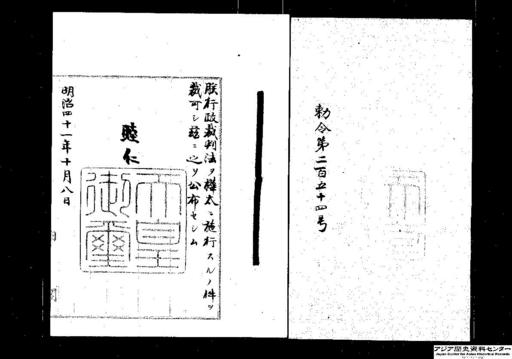 勅令第二百五十四号
朕行政裁判法ヲ樺太ニ施行スルノ件ヲ
裁可シ茲ニ之ヲ公布セシム
睦仁
天皇御璽
明治四十一年十月八日
アジア歴史資料センター
Japan Center for Asian Historical Records